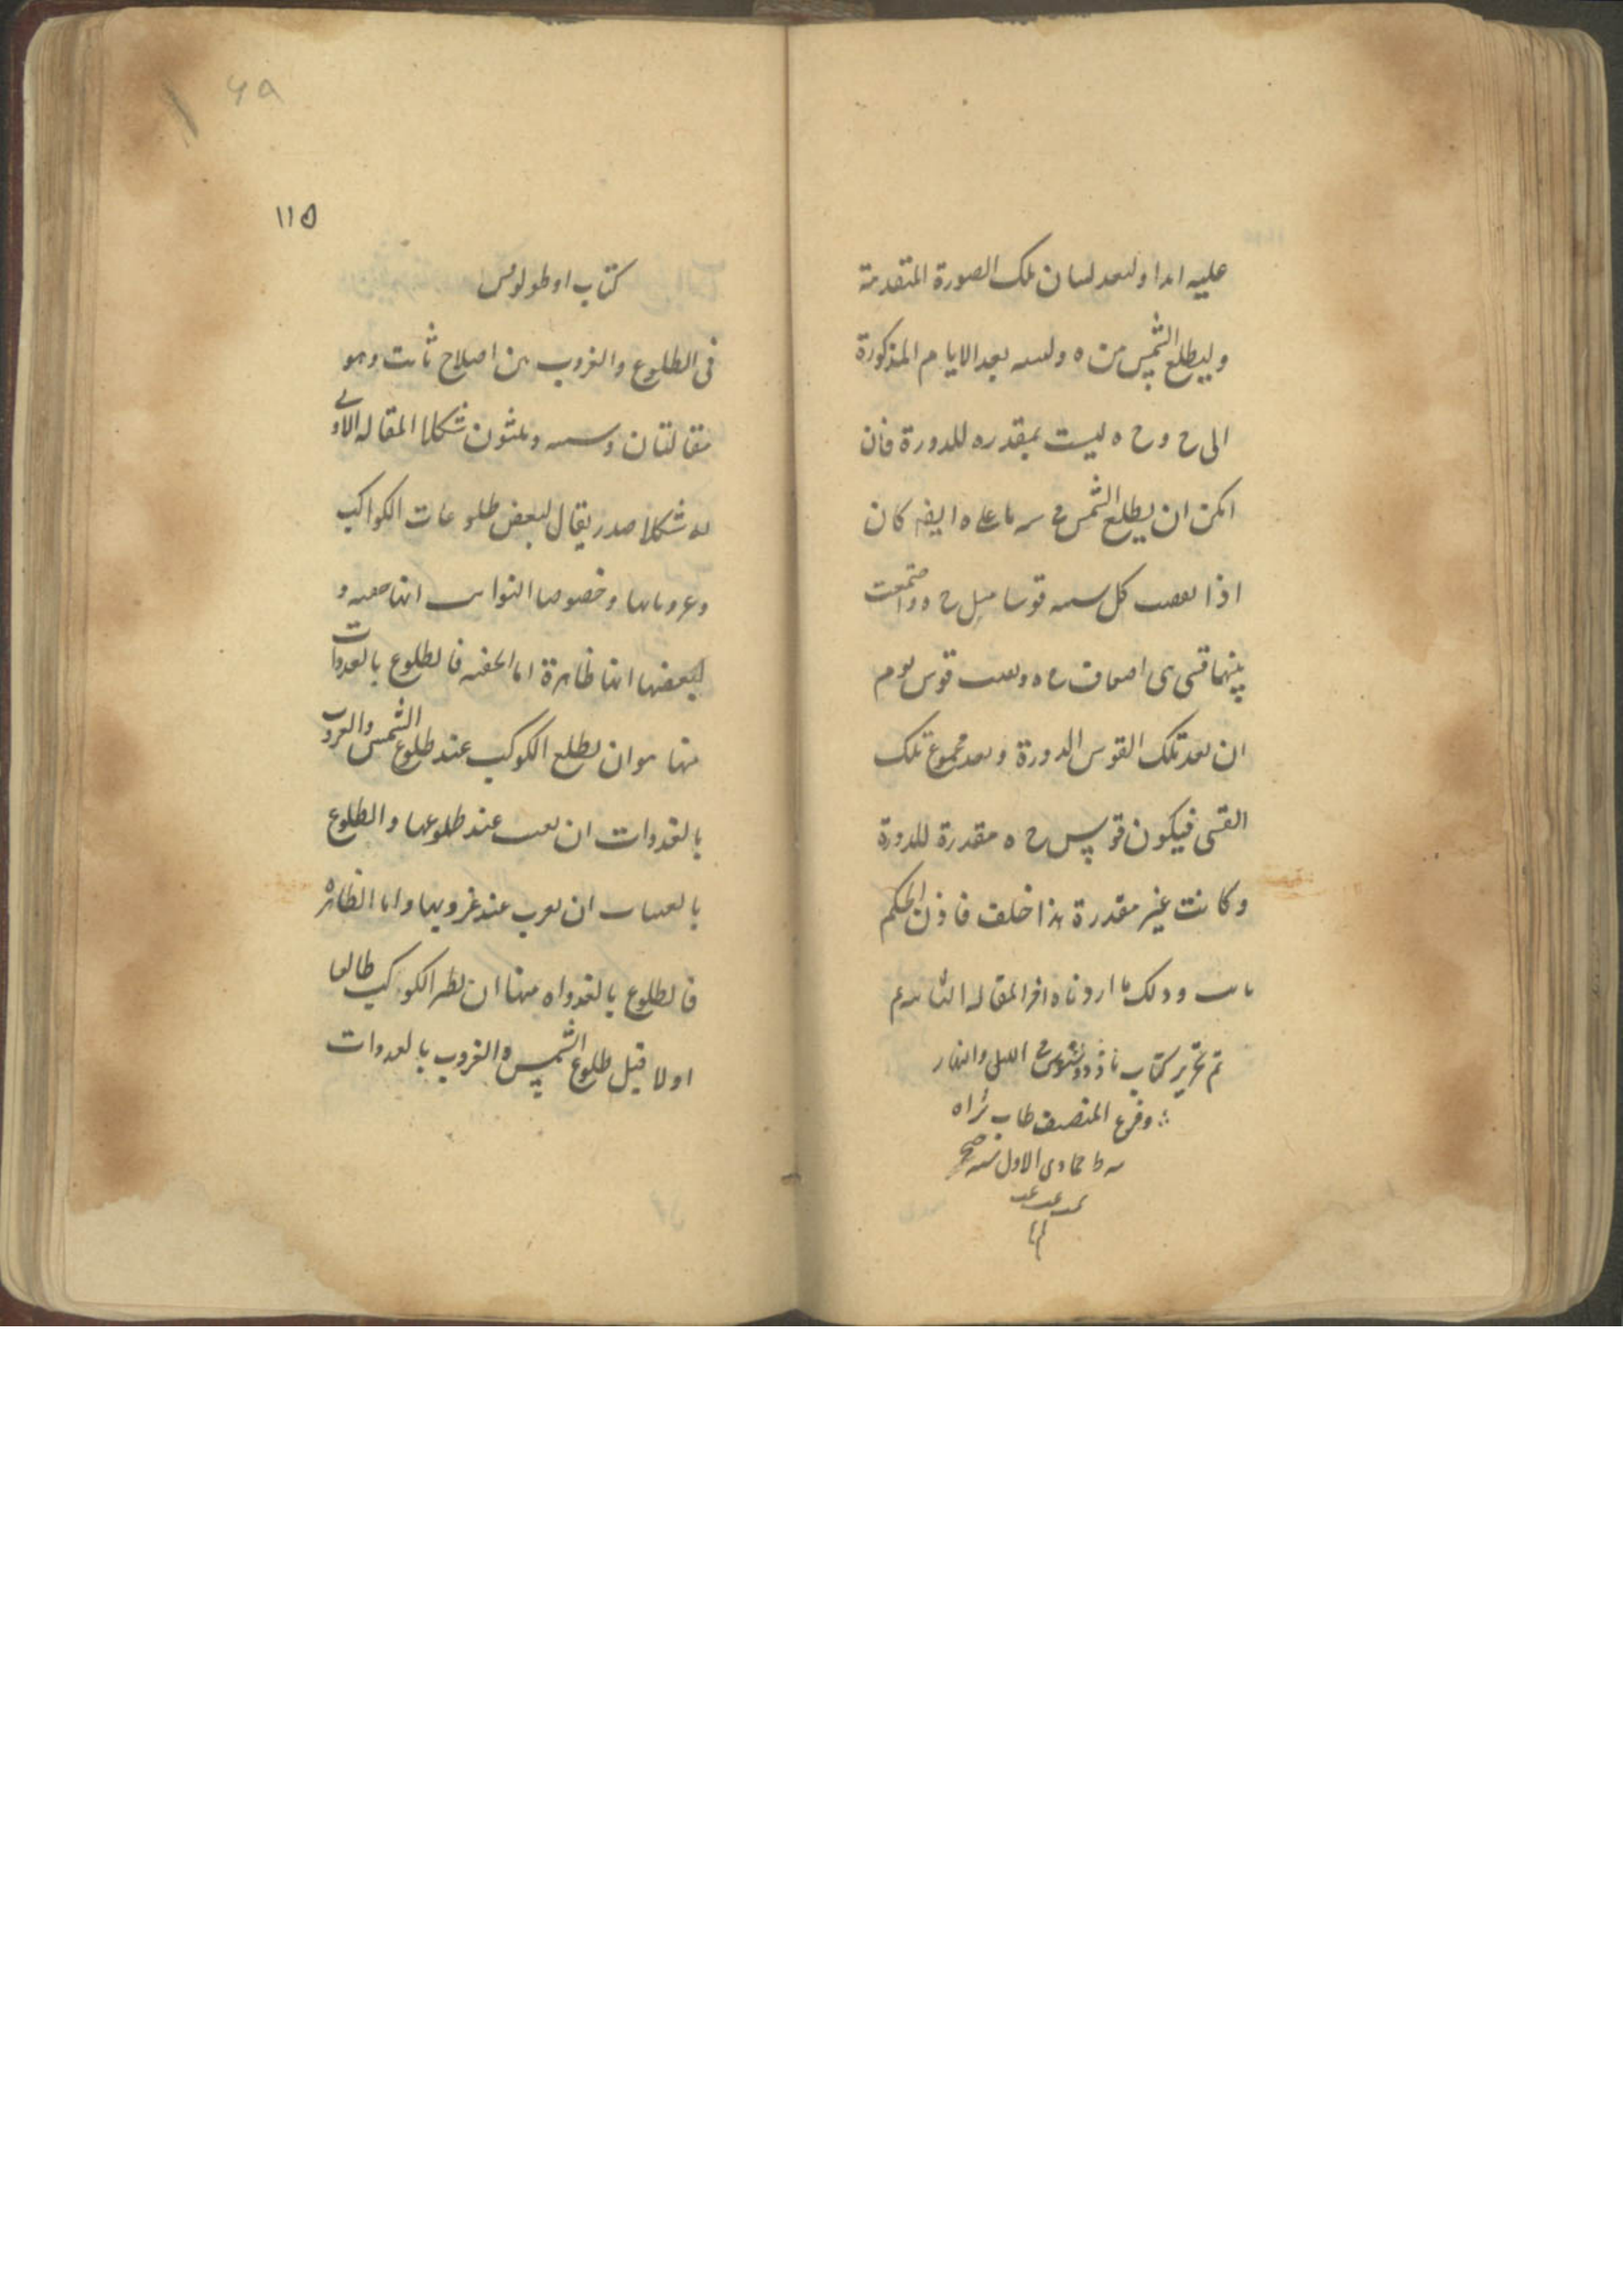 عليه ابدا ولنعد لبيان تلك الصورة المتقدمة
وليطلع الشمس من ه ولىىه بعد الايام المذكورة
الى ح و ح ه ليست بمقدره للدورة فان
امكن ان يطلع الشمس على ه ايضا كان
اذا كل سنة قوسا مثل ح ه واجتمعت
بينهما قسى هى اضعاف ح ه قوس يوم
ان تعد تلك القوس الدورة وتعد مجموع تلك
القسى فيكون قوس ح ه مقدرة للدورة
وكانت غير مقدرة هذا خلف فاذن الحكم
ثابت وذلك ما اردناه اخر المقاله الثانيه
تم تحرير كتاب ثاوذوسيوس فى الليل والنهار
وفرغ المصنف طاب ثراه
جمادى الاول سنه
١١٥
كتاب اوطولوقس
فى الطلوع والغروب من اصلاح ثابت وهو
مقالتان وستة وثلثون شكلا المقاله الاولى
شكلا صدر يقال لبعض طلوعات الكواكب
وغروباتها وخصوصا الثوابت انها خفيه و
لبعضها انها ظاهرة اما الخفيه فالطلوع بالغدوات
منها هو ان يطلع الكوكب عند طلوع الشمس والغروب
بالغدوات ان يغيب عند طلوعها والطلوع
بالعشيات ان يغرب عند غروبها واما الظاهره
فالطلوع بالغدواه منها ان يظهر الكوكب طالعا
اولا قبل طلوع الشمس والغروب بالغدوات